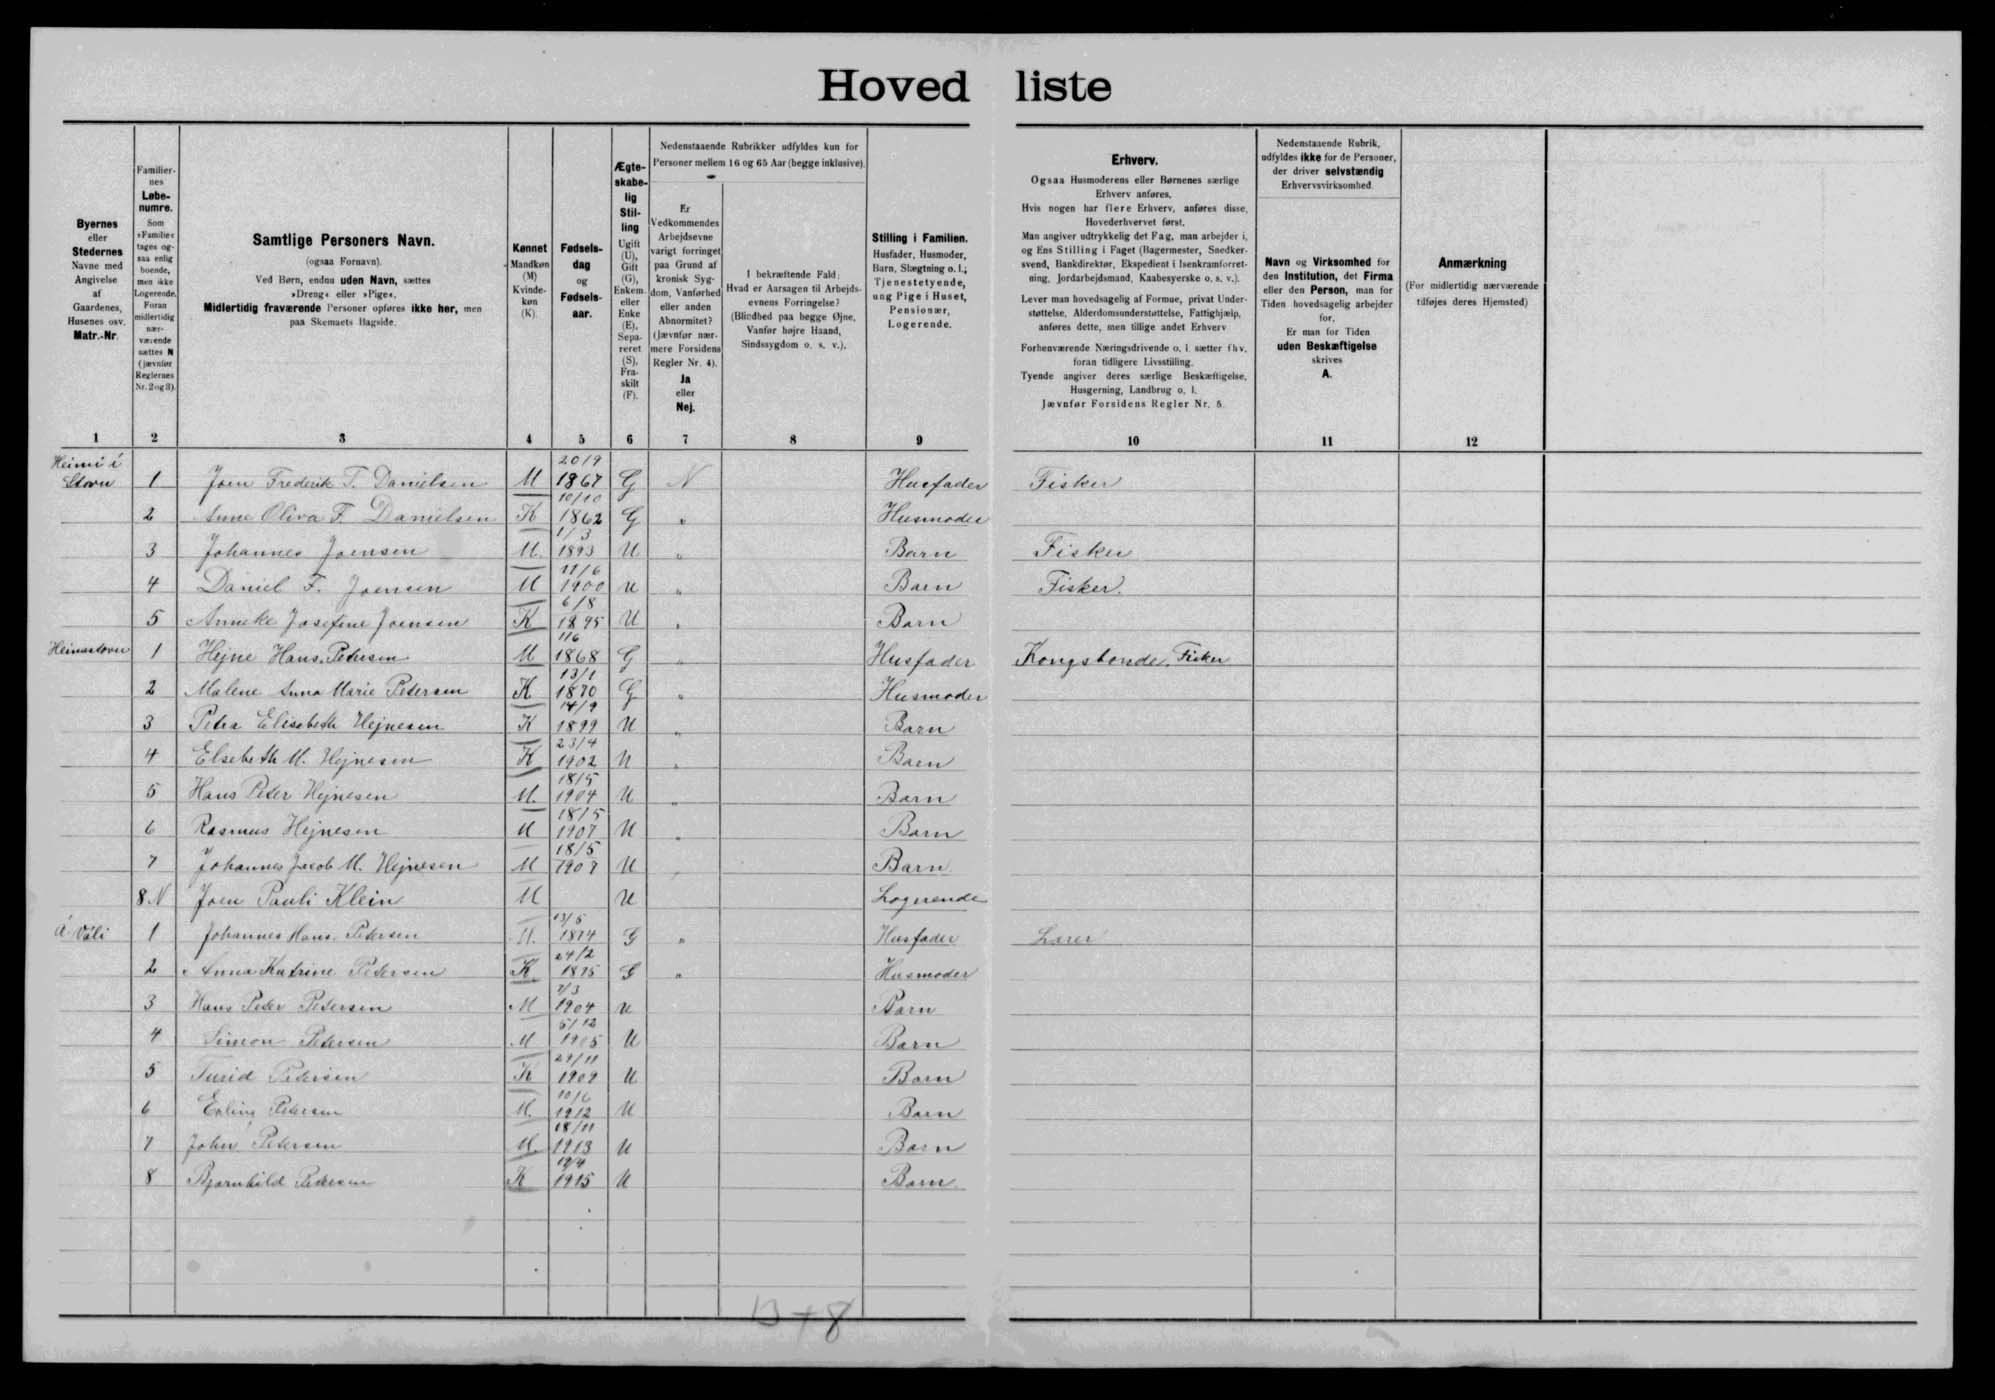 Hovedliste
Nedenstaaende Rubrikker udfyldes kun for
Personer mellem 16 og 65 Aar (begge inklusive).
Byernes
eller
Stedernes
Navne med
Angivelse
af
Gaardenes,
Husenes osv.
Matr.-Nr.
Familier-
nes
Løbe-
numre.
Som
»Familie«
tages og-
saa enlig
boende,
men ikke
Logerende.
Foran
midlertidig
nær-
værende
sættes N
(jævnfør
Reglernes
Nr. 2 og 3).
Samtlige Personers Navn.
(ogsaa Fornavn).
Ved Børn, endnu uden Navn, sættes
»Dreng« eller »Pige«.
Midlertidig fraværende Personer opføres ikke her, men
paa Skemaets Bagside.
Kønnet
Mandkøn
(M)
Kvinde-
køn
(K).
Fødsels-
dag
og
Fødsels-
aar.
Ægte-
skabe-
lig
Stil-
ling
Ugift
(U),
Gift
(G),
Enkem.
eller
Enke
(E),
Sepa-
reret
(S),
Fra-
skilt
(F).
Er
Vedkommendes
Arbejdsevne
varigt forringet
paa Grund af
kronisk Syg-
dom, Vanførhed
eller anden
Abnormitet?
(Jævnfør nær-
mere Forsidens
Regler Nr. 4).
Ja
eller
Nej.
I bekræftende Fald:
Hvad er Aarsagen til Arbejds-
evnens Forringelse?
(Blindhed paa begge Øjne,
Vanfør højre Haand,
Sindssygdom o. s. v.).
Stilling i Familien.
Husfader, Husmoder,
Barn, Slægtning o. l.;
Tjenestetyende,
ung Pige i Huset,
Pensionær,
Logerende.
Erhverv.
Ogsaa Husmoderens eller Børnenes særlige
Erhverv anføres.
Hvis nogen har flere Erhverv, anføres disse,
Hovederhvervet først.
Man angiver udtrykkelig det Fag, man arbejder i,
og Ens Stilling i Faget (Bagermester, Snedker-
svend, Bankdirektør, Ekspedient i Isenkramforret-
ning, Jordarbejdsmand, Kaabesyerske o. s. v.).
Lever man hovedsagelig af Formue, privat Under-
støttelse, Alderdomsunderstøttelse, Fattighjælp,
anføres dette, men tillige andet Erhverv
Forhenværende Næringsdrivende o. l. sætter fhv.
foran tidligere Livsstilling.
Tyende angiver deres særlige Beskæftigelse,
Husgerning, Landbrug o. l.
Jævnfør Forsidens Regler Nr. 5.
Nedenstaaende Rubrik,
udfyldes ikke for de Personer,
der driver selvstændig
Erhvervsvirksomhed.
Navn og Virksomhed for
den Institution, det Firma
eller den Person, man for
Tiden hovedsagelig arbejder
for.
Er man for Tiden
uden Beskæftigelse
skrives
A.
Anmærkning
(For midlertidig nærværende
tilføjes deres Hjemsted)
1 2 3 4 5 6 7 8 9 10 11 12
Heimi í 20/9
Stovu 1 Joen Frederik T. Danielsen M 1867 G N Husfader Fisker
10/10
2 Anne Oliva F. Danielsen K 1862 G " Husmoder
1/3
3 Johannes Joensen M. 1893 U " Barn Fisker
11/6
4 Daniel F. Joensen M 1900 U " Barn Fisker.
6/8
5 Anneke Josefine Joensen K 1895 U " Barn
1/6
Heimastovu 1 Hejne Hans. Petersen M 1868 G " Husfader Kongsbonde, Fisker
13/1
2 Malene Anna Marie Petersen K 1870 G " Husmoder
14/9
3 Petra Elisabeth Hejnesen K 1899 U " Barn
23/4
4 Elsebeth M. Hejnesen K 1902 U " Barn
18/5
5 Hans Peter Hejnesen M. 1904 U " Barn
18/5
6 Rasmus Hejnesen M 1907 U " Barn
18/5
7 Johannes Jacob M. Hejnesen M 1907 U " Barn
8 N Joen Pauli Klein M U Logerende
13/5
Á Váli 1 Johannes Hans. Petersen M. 1874 G " Husfader Lærer
24/2
2 Anna Katrine Petersen K 1875 G " Husmoder
7/3
3 Hans Peter Petersen M 1904 U Barn
5/12
4 Simon Petersen M 1905 U Barn
29/11
5 Turid Petersen K 1909 U Barn
10/6
6 Erling Petersen M. 1912 U Barn
18/11
7 John Petersen M. 1913 U Barn
19/4
8 Bjørnhild Petersen K 1915 U Barn
13 + 8